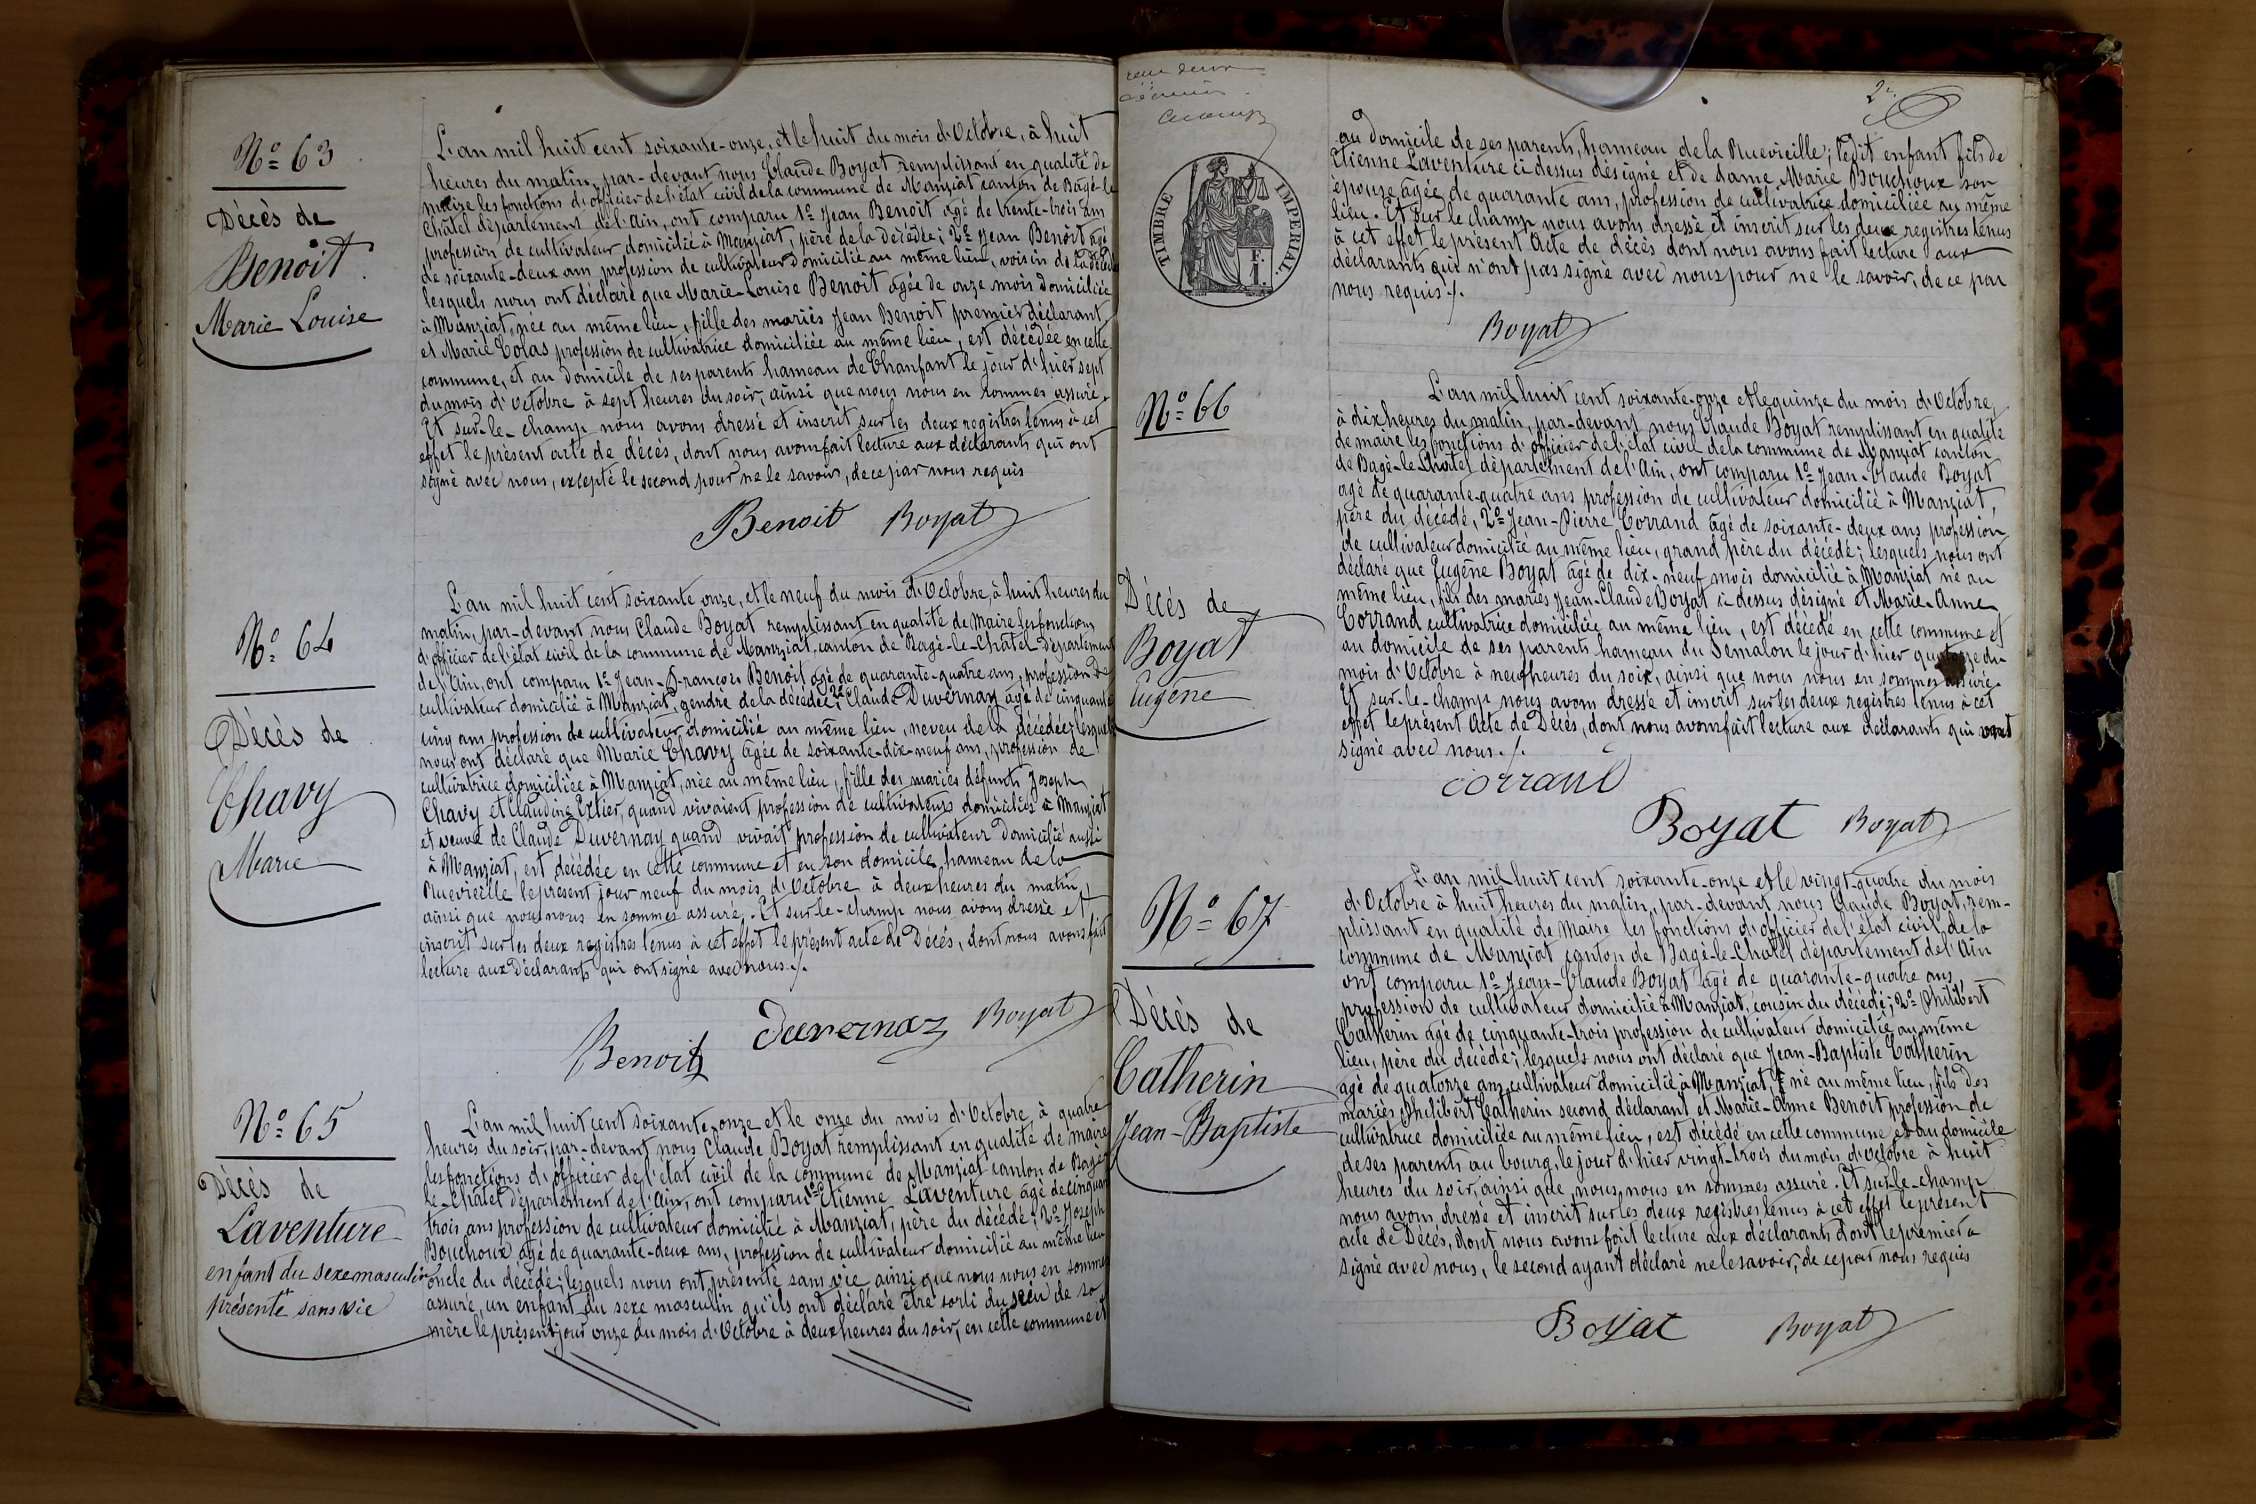 N° 63
Décès de
Benoit
Marie Louise
L'an mil huit cent soixante-onze, et le huit du mois d'Octobre, à huit
heures du matin, par-devant nous Claude Boyat remplissant en qualité de
maire les fonctions d'officier de l'état civil de la commune de Manziat canton de Bagé-le
Châtel département de l'Ain, ont comparu 1° Jean Benoit âgé de trente-trois ans
profession de cultivateur domicilié à Manziat, père de la décédée; 2° Jean Benoit âgé
de soixante-deux ans profession de cultivateur domicilié au même lieu, voisin de la décédée
lesquels nous ont déclaré que Marie-Louise Benoit âgée de onze mois domiciliée
à Manziat, née au même lieu, fille des mariés Jean Benoit premier déclarant,
et Marie Colas profession de cultivatrice domiciliée au même lieu, est décédée en cette
commune, et au domicile de ses parents hameau de Chanfant le jour d'hier sept
du mois d'Octobre à sept heures du soir, ainsi que nous nous en sommes assuré.
Et sur-le-champ nous avons dressé et inscrit sur les deux registres tenus à cet
effet le présent acte de décès, dont nous avons fait lecture aux déclarants qui ont
signé avec nous, excepté le second pour ne le savoir, de ce par nous requis
Benoit Boyat
N° 64
Décès de
Chavy
Marie
L'an mil huit cent soixante onze, et le neuf du mois d'Octobre, à huit heures du
matin, par-devant nous Claude Boyat remplissant en qualité de Maire les fonctions
d'officier de l'état civil de la commune de Manziat, canton de Bagé-le-Châtel département
de l'Ain, ont comparu 1° Jean-François Benoit âgé de quarante-quatre ans, profession de
cultivateur domicilié à Manziat, gendre de la décédée; 2° Claude Duvernay âgé de cinquante
cinq ans profession de cultivateur domicilié au même lieu, neveu de la décédée; lesquels
nous ont déclaré que Marie Chavy âgée de soixante-dix-neuf ans, profession de
cultivatrice domiciliée à Manziat, née au même lieu, fille des mariés défunts Joseph
Chavy et Claudine Extier, quand vivaient profession de cultivateurs domiciliés à Manziat
et veuve de Claude Duvernay quand vivait profession de cultivateur domicilié aussi
à Manziat, est décédée en cette commune et en son domicile, hameau de la
Ruevieille le présent jour neuf du mois d'Octobre à deux heures du matin,
ainsi que nous nous en sommes assuré. Et sur-le-champ nous avons dressé et
inscrit sur les deux registres tenus à cet effet le présent acte de Décès, dont nous avons fait
lecture aux déclarants qui ont signé avec nous ./.
Benoit Duvernay Boyat
N° 65
Décès de
Laventure
enfant du sexe masculin
présenté sans vie
L'an mil huit cent soixante-onze et le onze du mois d'Octobre, à quatre
heures du soir, par-devant nous Claude Boyat remplissant en qualité de maire
les fonctions d'officier de l'état civil de la commune de Manziat canton de Bagé
le-Châtel département de l'Ain, ont comparu 1° Etienne Laventure âgé de cinquante
trois ans profession de cultivateur domicilié à Manziat, père du décédé; 2° Joseph
Bouchoux âgé de quarante-deux ans, profession de cultivateur domicilié au même lieu
oncle du décédé; lesquels nous ont présenté sans vie ainsi que nous nous en sommes
assuré, un enfant du sexe masculin qu'ils ont déclaré être sorti du sein de sa
mère le présent jour onze du mois d'Octobre à deux heures du soir, en cette commune et
2°
TIMBRE IMPERIAL
F. I
au domicile de ses parents, hameau de la Ruevieille; ledit enfant fils de
Etienne Laventure ci dessus désigné et de dame Marie Bouchoux son
épouse âgée de quarante ans, profession de cultivatrice domiciliée au même
lieu. Et sur le champ nous avons dressé et inscrit sur les deux registres tenus
à cet effet le présent Acte de décès dont nous avons fait lecture aux
déclarants qui n'ont pas signé avec nous pour ne le savoir, de ce par
nous requis ./.
Boyat
N° 66
Décès de
Boyat
Eugène
L'an mil huit cent soixante-onze et le quinze du mois d'Octobre,
à dix heures du matin, par-devant nous Claude Boyat remplissant en qualité
de maire les fonctions d'officier de l'état civil de la commune de Manziat canton
de Bagé-le-Châtel département de l'Ain, ont comparu 1° Jean-Claude Boyat
âgé de quarante-quatre ans profession de cultivateur domicilié à Manziat,
père du décédé, 2° Jean-Pierre Corrand âgé de soixante-deux ans profession
de cultivateur domicilié au même lieu, grand père du décédé; lesquels nous ont
déclaré que Eugène Boyat âgé de dix-neuf mois domicilié à Manziat né au
même lieu, fils des mariés Jean-Claude Boyat ci dessus désigné et Marie-Anne
Corrand cultivatrice domiciliée au même lieu, est décédé en cette commune et
au domicile de ses parents hameau du Semalon le jour d'hier quatorze du
mois d'Octobre à neuf heures du soir, ainsi que nous nous en sommes assuré.
Et sur-le-champ nous avons dressé et inscrit sur les deux registres tenus à cet
effet le présent Acte de Décès, dont nous avons fait lecture aux déclarants qui ont
signé avec nous ./.
corrand
Boyat Boyat
N° 67
Décès de
Catherin
Jean-Baptiste
L'an mil huit cent soixante-onze et le vingt-quatre du mois
d'Octobre à huit heures du matin, par-devant nous Claude Boyat, rem-
plissant en qualité de Maire les fonctions d'officier de l'état civil de la
commune de Manziat canton de Bagé-le-Châtel département de l'Ain
ont comparu 1° Jean-Claude Boyat âgé de quarante-quatre ans,
profession de cultivateur domicilié à Manziat, cousin du décédé; 2° Philibert
Catherin âgé de cinquante-trois profession de cultivateur domicilié au même
lieu, père du décédé; lesquels nous ont déclaré que Jean-Baptiste Catherin
âgé de quatorze ans, cultivateur domicilié à Manziat, né au même lieu, fils des
mariés Philibert Catherin second déclarant et Marie-Anne Benoit profession de
cultivatrice domiciliée au même lieu, est décédé en cette commune et au domicile
de ses parents au bourg, le jour d'hier vingt-trois du mois d'Octobre à huit
heures du soir, ainsi que nous nous en sommes assuré. Et sur-le-champ
nous avons dressé et inscrit sur les deux registres tenus à cet effet le présent
acte de Décès, dont nous avons fait lecture aux déclarants dont le premier a
signé avec nous, le second ayant déclaré ne le savoir, de ce par nous requis
Boyat Boyat